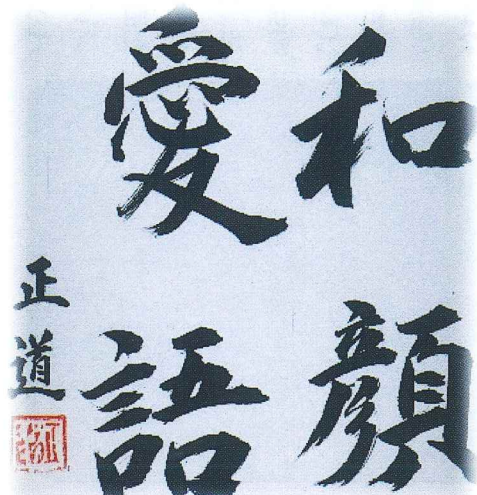 和顔
愛語
正道